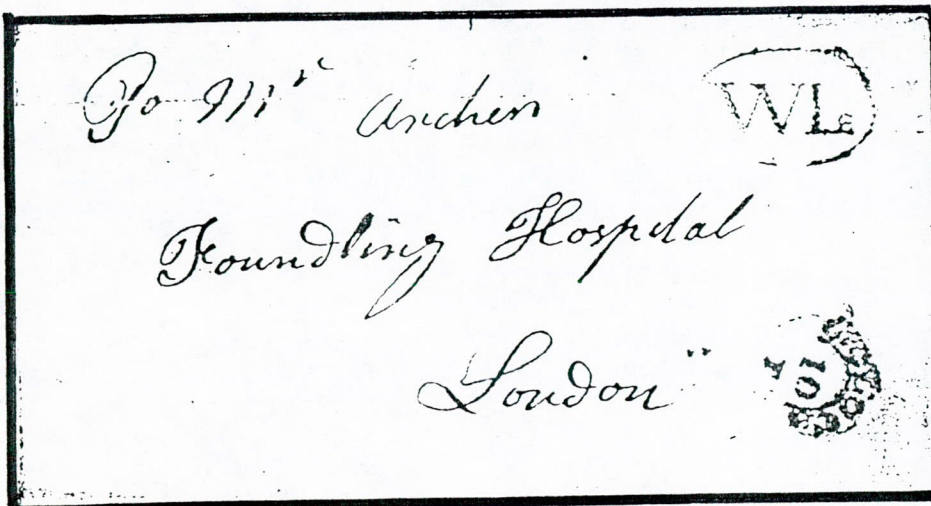 To Mr Archer
WL
Foundling Hospital
London